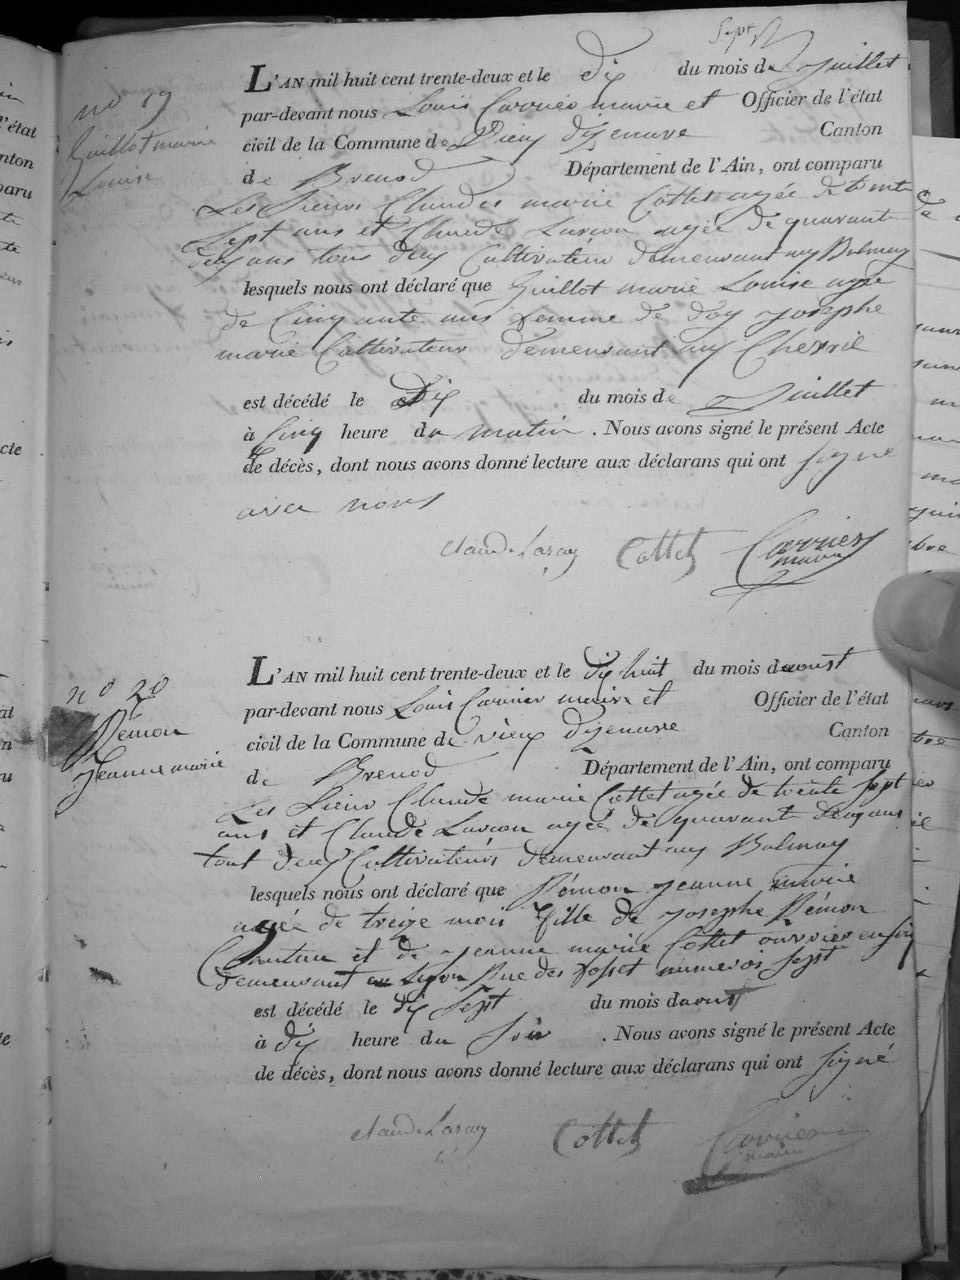 Sept
L'AN mil huit cent trente-deux et le dix du mois de Juillet
no 19
Guillot marie
Louise
par-devant nous Louis Carrier maire et Officier de l'état
civil de la Commune de Vieux d'izenave Canton
de Brenod Département de l'Ain, ont comparu
Les Sieurs Claudes marie Cottet agée de trente
Sept ans et Claude Laracon agée de quarant
deux ans tous deux Cultivateur demeurant aux Balmay
lesquels nous ont déclaré que Guillot marie Louise agée
de Cinquante ans femme de Josephe
marie Cultivateur demeurant aux
est décédé le Dix du mois de Juillet
à Cinq heure du matin . Nous avons signé le présent Acte
de décès, dont nous avons donné lecture aux déclarans qui ont signé
avec nous
Claude Cottet Carrier
maire
L'AN mil huit cent trente-deux et le dix huit du mois d'aoust
no 20
Rémon
Jeanne marie
par-devant nous Louis Carrier maire et Officier de l'état
civil de la Commune de vieux d'izenave Canton
de Brenod Département de l'Ain, ont comparu
Les Sieur Claude marie Cottet agée de trente sept
ans et Claude agée de quarant deux ans
tout deux Cultivateurs demeurant aux Balmay
lesquels nous ont déclaré que Rémon Jeanne marie
agée de treize mois fille de Josephe Rémon
et de Jeanne marie Cottet ouvrier en
demeurant a Lyon Rue des numerois sept
est décédé le dix sept du mois d'aoust
à dix heure du soir . Nous avons signé le présent Acte
de décès, dont nous avons donné lecture aux déclarans qui ont signé
Claude Cottet Carrier
maire